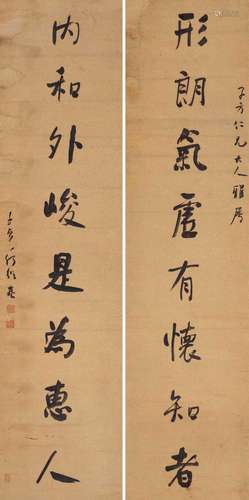 子方仁兄大人雅屬
形朗氣虛有懷知者
內和外峻是為惠人